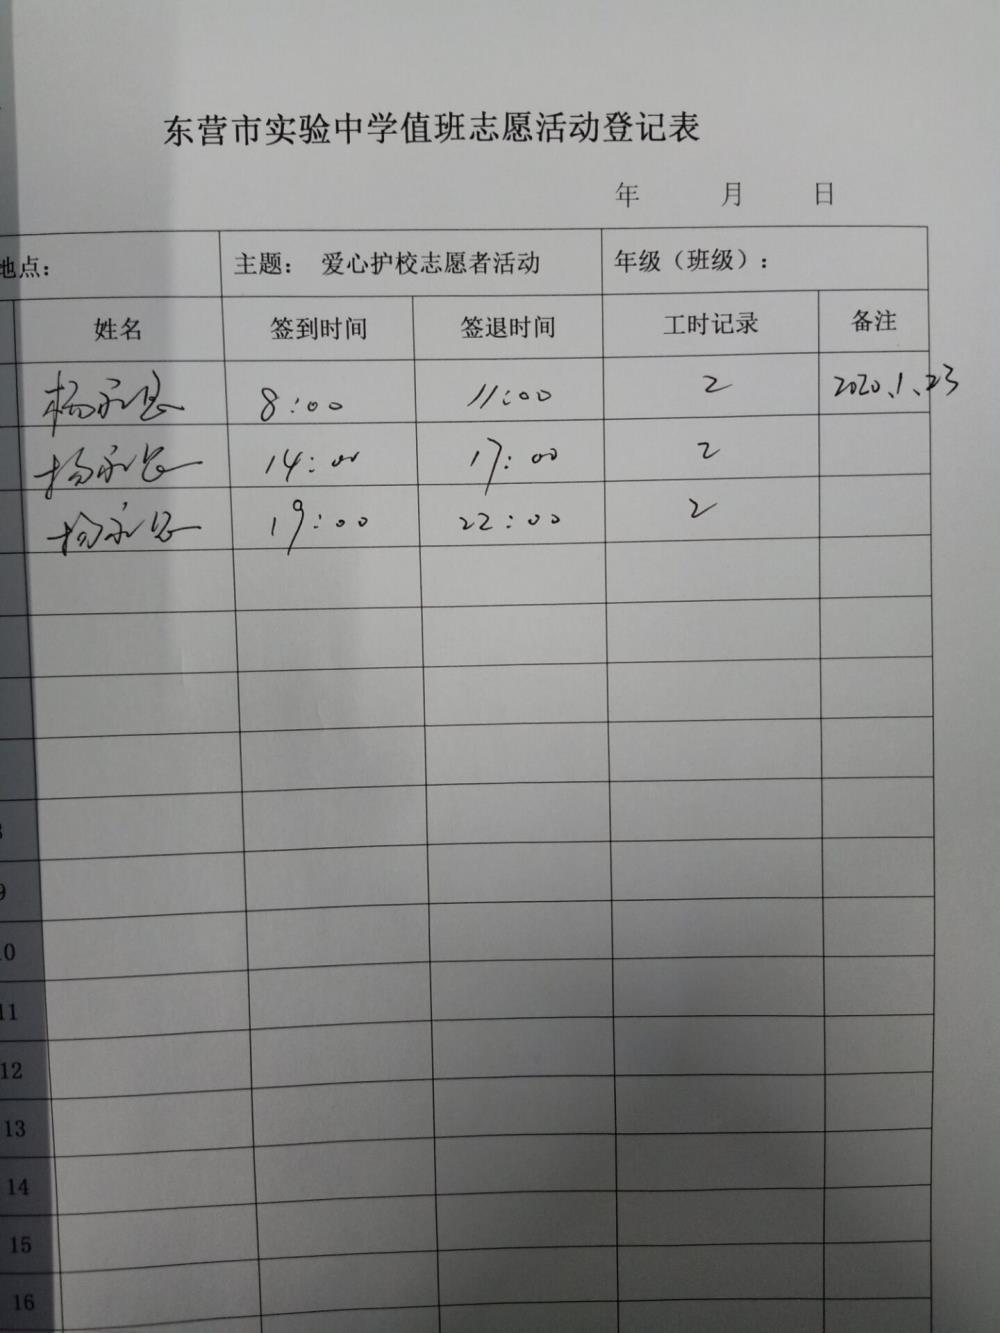 东营市实验中学值班志愿活动登记表
年 月 日
地点： 主题： 爱心护校志愿者活动 年级（班级）：
姓名 签到时间 签退时间 工时记录 备注
8:00 11:00 2 2020.1.23
14:00 17:00 2
19:00 22:00 2
9
10
11
12
13
14
15
16